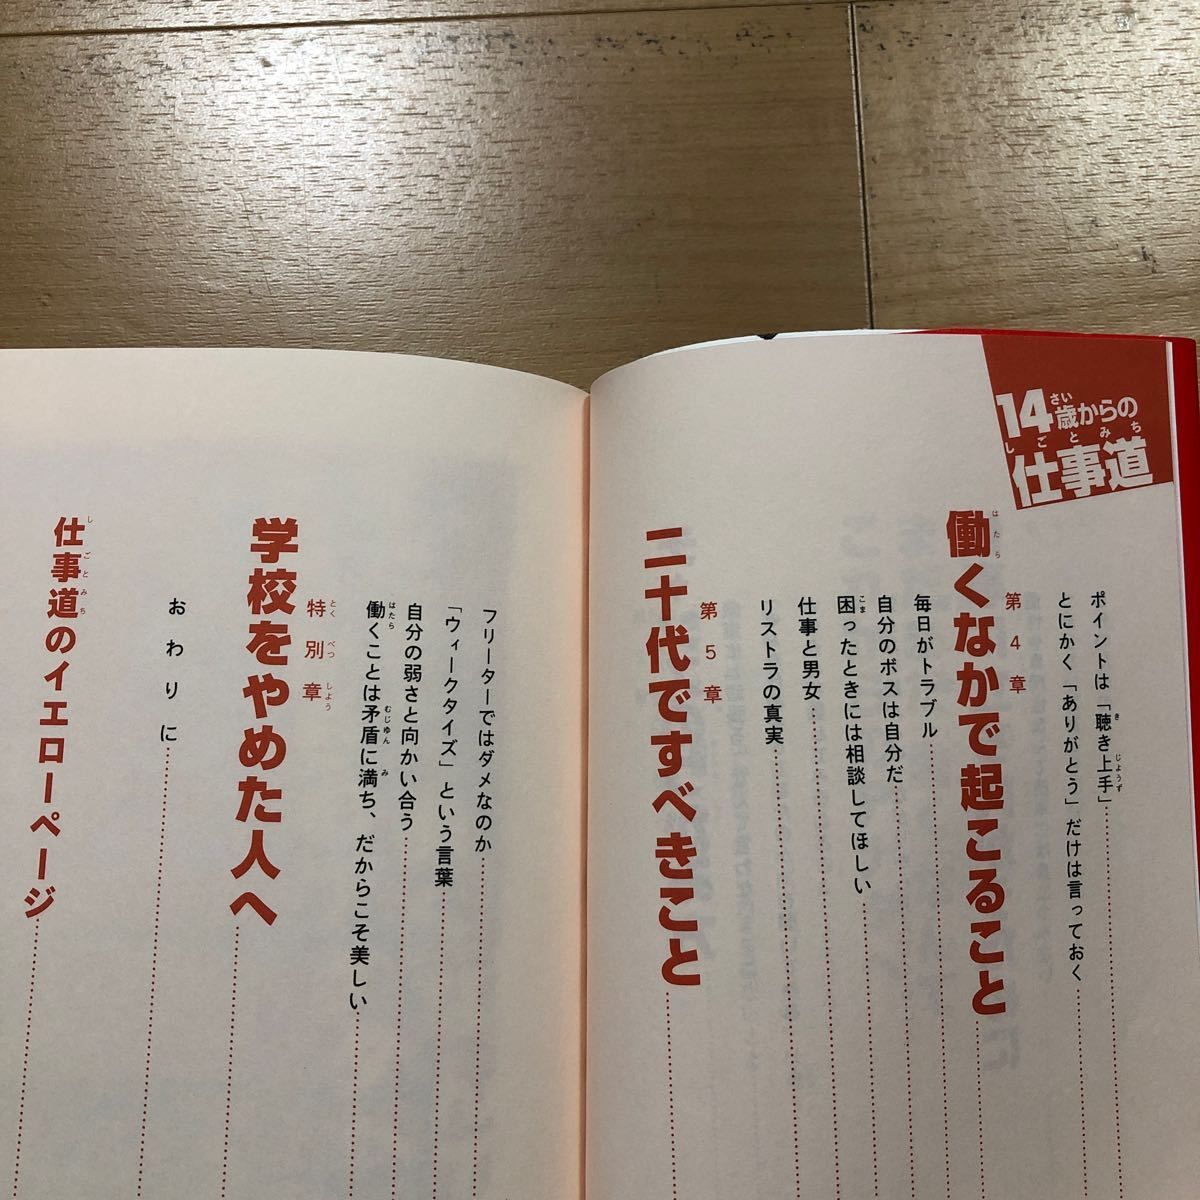 14歳からの
仕事道
ポイントは「聴き上手」
とにかく「ありがとう」だけは言っておく
第4章
働くなかで起こること
毎日がトラブル
自分のボスは自分だ
困ったときには相談してほしい
仕事と男女
リストラの真実
第5章
二十代ですべきこと
フリーターではダメなのか
「ウィークタイズ」という言葉
自分の弱さと向かい合う
働くことは矛盾に満ち、だからこそ美しい
特別章
学校をやめた人へ
おわりに
仕事道のイエローページ